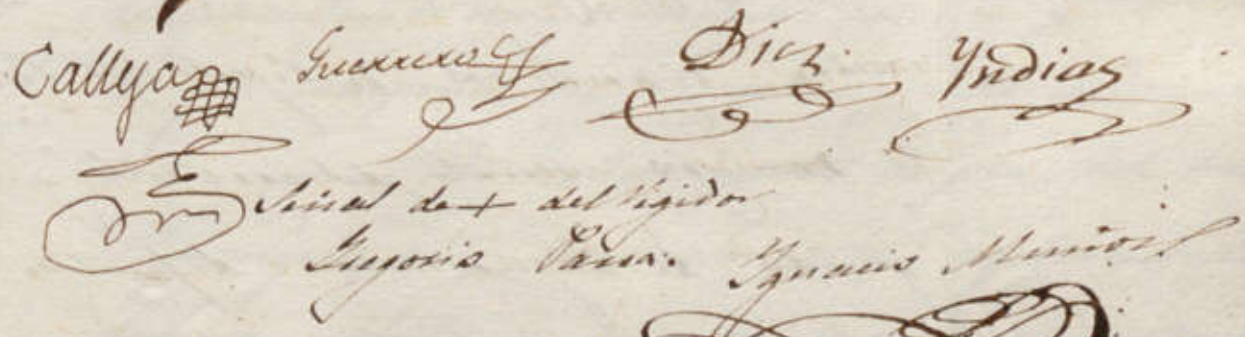 Calleja Guerrero Diez Yndias
Señal de + del Rejidor
Gregorio Parra. Ygnacio Muñoz